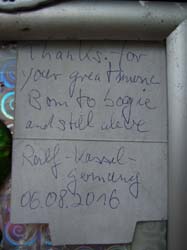 Thanks for
your great music
Born to bogie
and still alive
Ralf - Kassel -
germany
06.08.2016